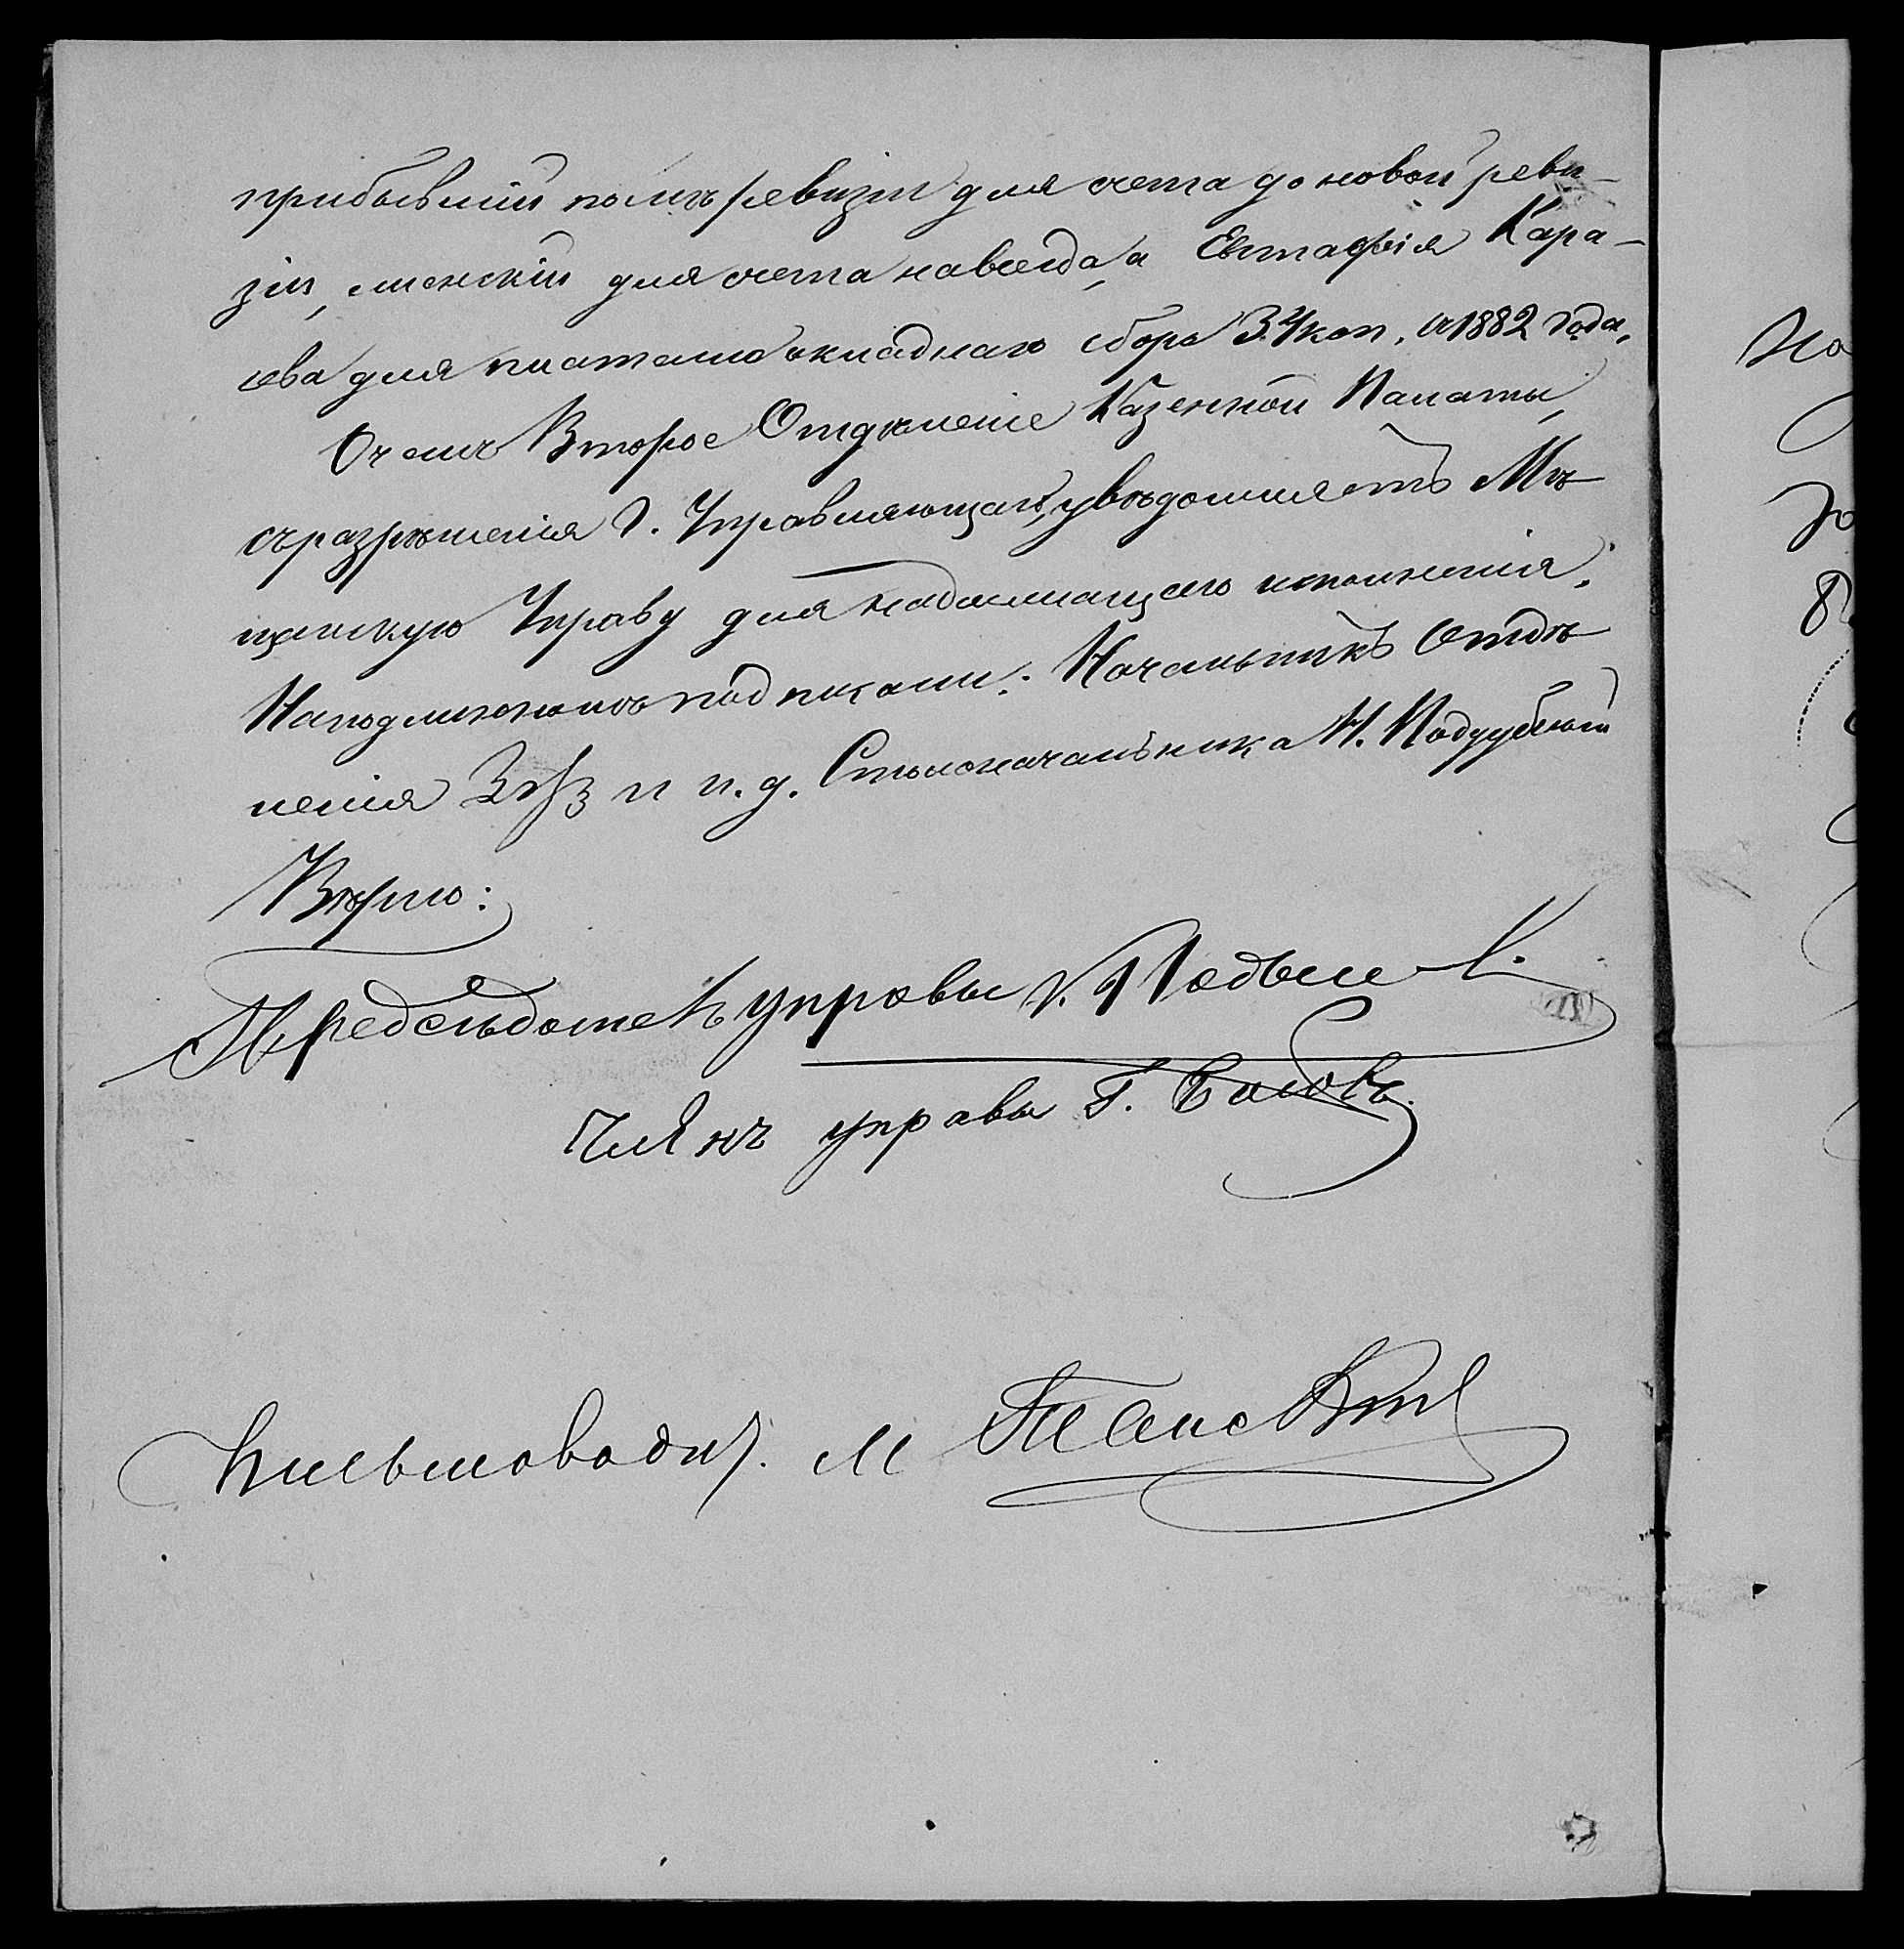 прибывшій послѣ ревизіи для счета до новой реви-
зіи, женскій для счета навсегда, а Евтафія Кара-
сева для платежа окладнаго сбора 34 коп. съ 1882 года.
О чемъ Второе Отдѣленіе Казенной Палаты,
съ разрѣшенія Г. Управляющаго, увѣдомляетъ Мѣ-
щанскую Управу для надлежащаго исполненія.
На подлинномъ подписали: Начальникъ Отдѣ-
ленія и и. д. Столоначальника И. Поддубный
Вѣрно:
Предсѣдатель управы
Членъ управы Г.
Письмовод. М